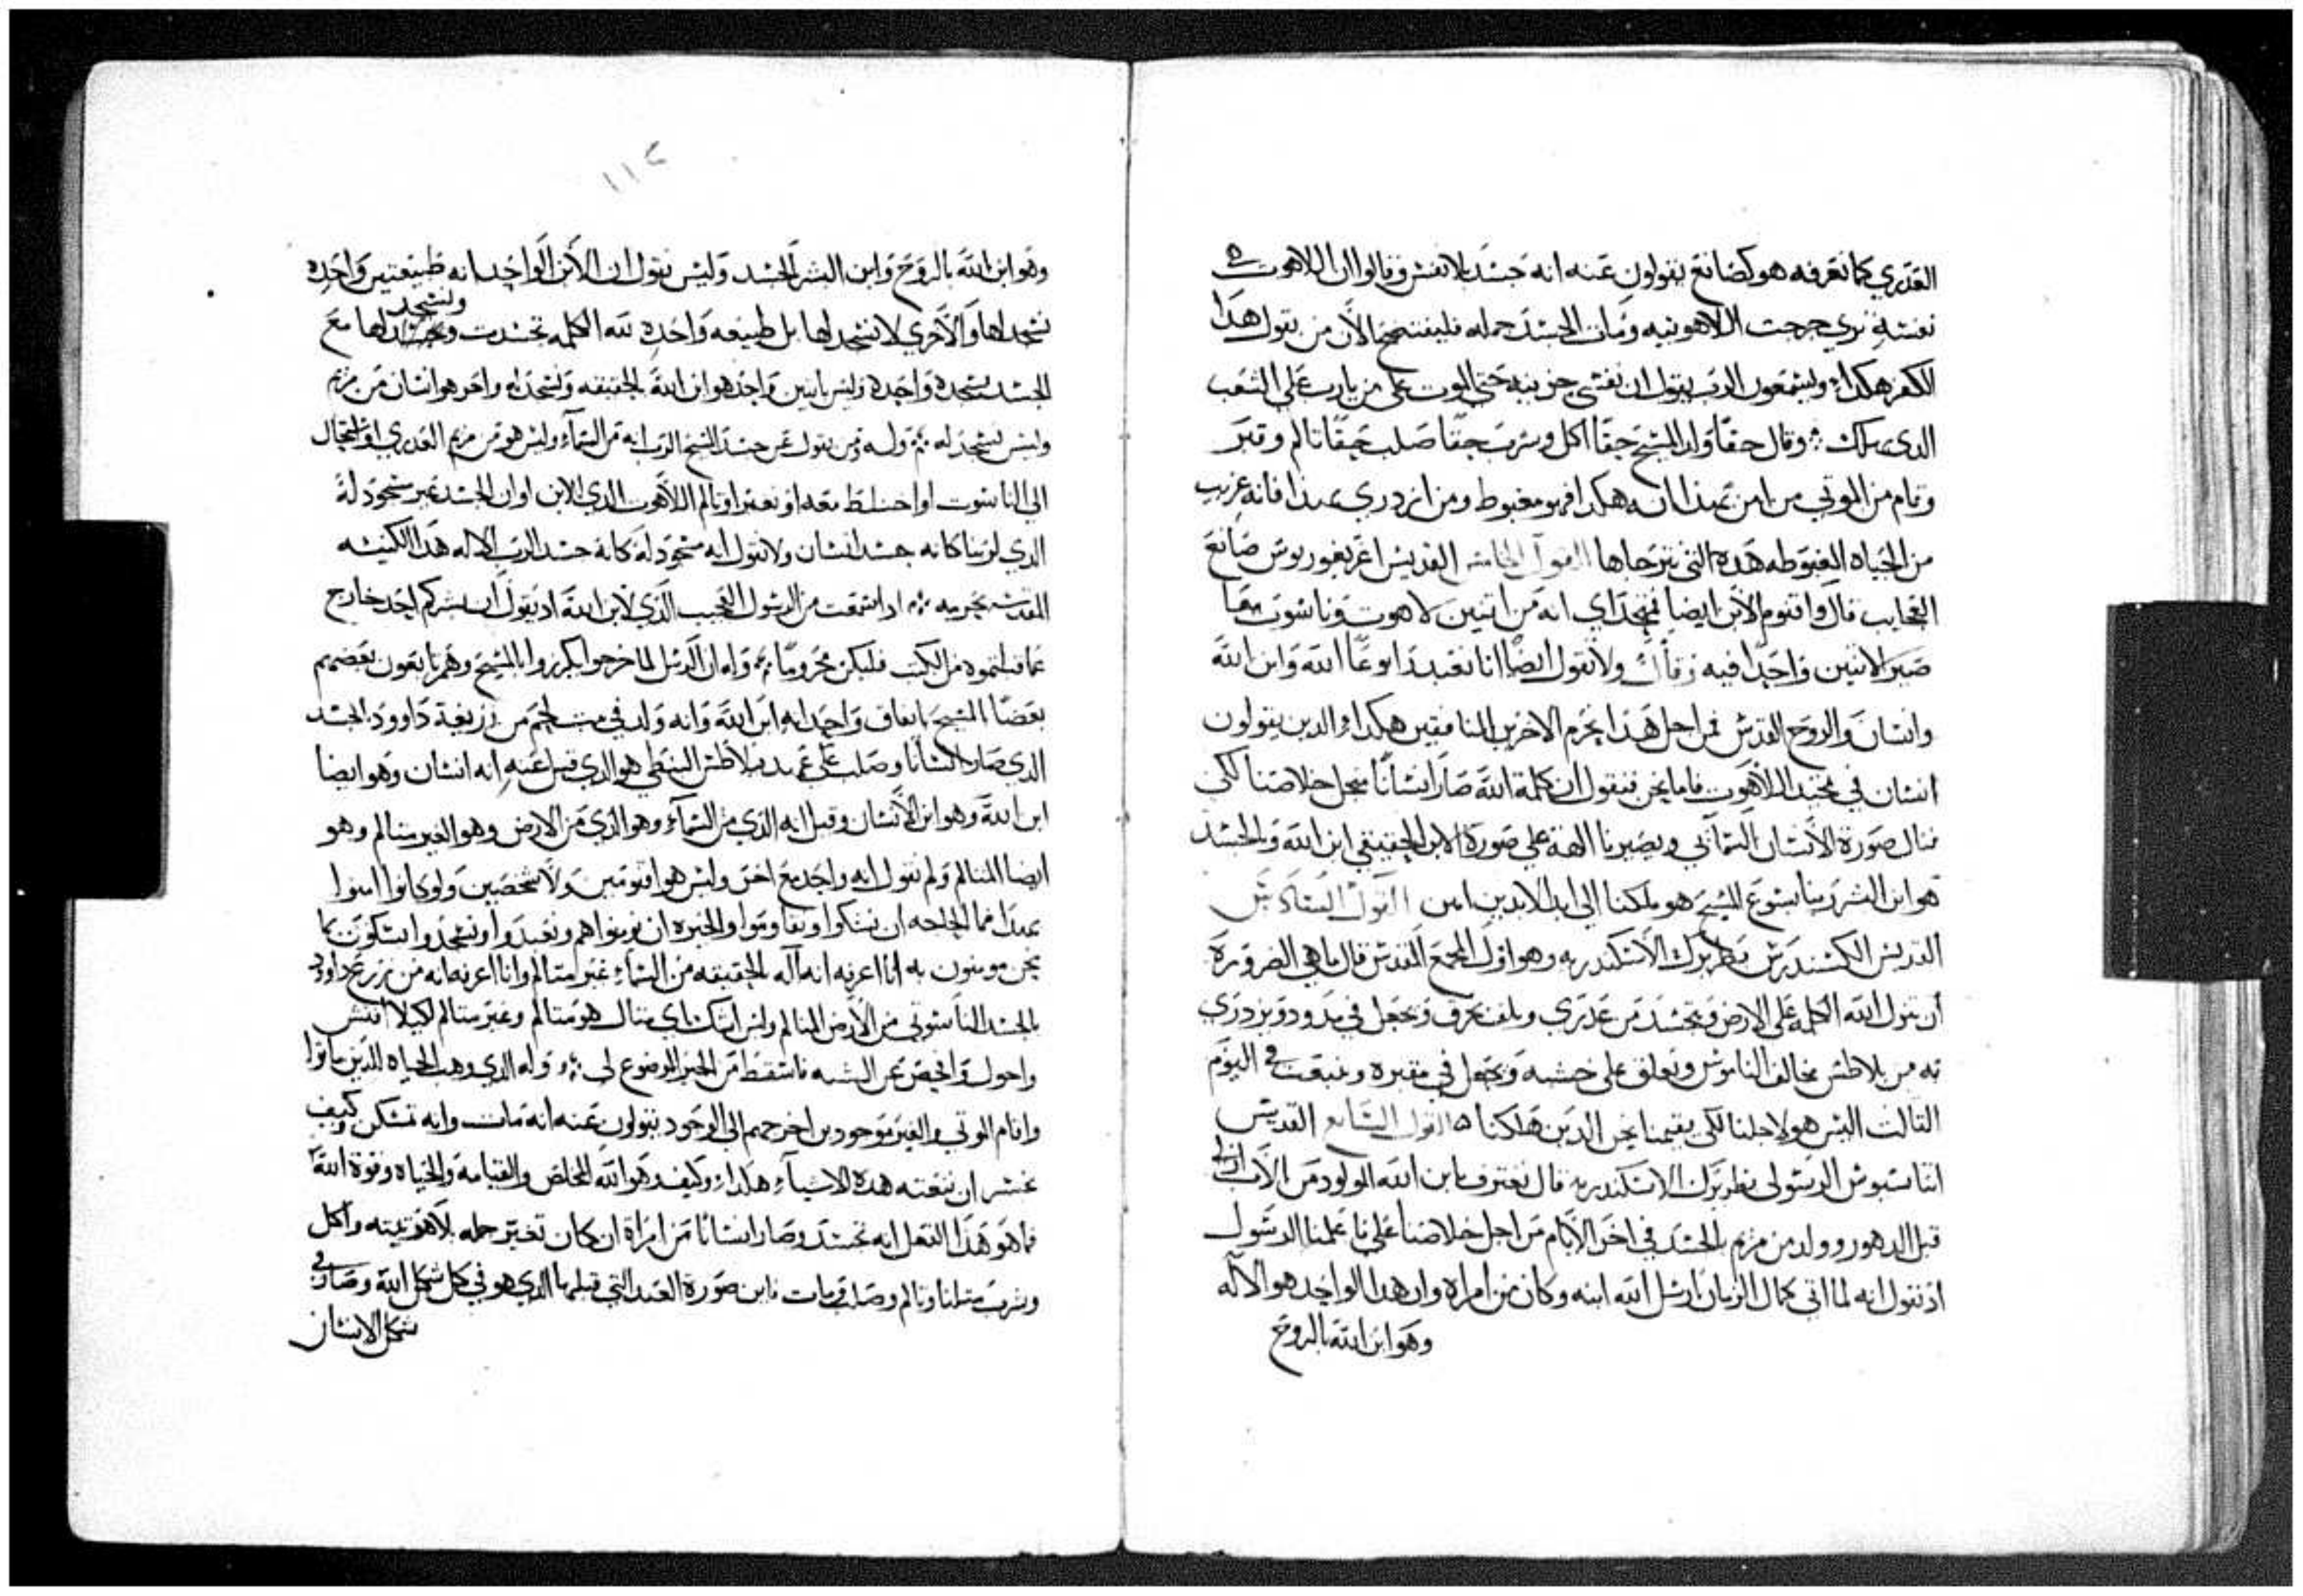 العدري كما نعرفه هو كضانع يقولون عنه انه جسد بلا نفس وقالوا ان اللاهوت
نفسه تري خرجت اللاهوتيه ومات الجسد حمله فليفتضح الان من يقول هذا
الكفر هكداء ويسمعون الرب يقول ان نفسي حزينه حتي الموت علي من يارب علي الشعب
الدي بك وقال حقا وان المسيح حقا اكل وشرب حقا صلب حقا تالم وقبر
وقام من الموتي من امن بهدا انه هكدا فهو مغبوط ومن ازدري بهدا فانه غريب
من الحياه المغبوطه هده التي نترجاها القول الخامس القديس اغريغوريوس صانع
العجايب قال واقنوم الابن ايضا نمجد اي انه من اتنين لاهوت وناسوت معا
صير الاتنين واحدا فيه ولا نقول ايضا انا نعبد رابوعا الله وابن الله
وانسان والروح القدس فمن اجل هدا نحرم الاخرين المنافقين هكداء والدين يقولون
انسان في مجد اللاهوت فاما نحن فنقول ان كلمة الله صار انسانا من اجل خلاصنا لكي
ننال صورة الانسان السماني ويصيرنا الهة علي صورة الابن الحقيقي ابن الله والجسد
هو ابن البشر ربنا يسوع المسيح هو ملكنا الي ابد الابدين امين القول السادس
القديس الكسندرس بطريرك الاسكندريه وهو اول المجمع المقدس قال ما هي الضرورة
ان ينزل الله الكلمه علي الارض ويتجسد من عدري ويلف بخرق ويجعل في مدود ويزدري
به من بيلاطس مخالف الناموس ويعلق علي خشبه ويجعل في مقبره وينبعث في اليوم
التالت اليس هو لاجلنا لكي يقيمنا نحن الدين هلكنا القول السابع القديس
اتناسيوس الرسولي بطريرك الاسكندريه قال نعترف بابن الله المولود من الاب ازلي
قبل الدهور وولد من مريم بالجسد في اخر الايام من اجل خلاصنا علي ما علمنا الرسول
اد نقول انه لما اتي كمال الزمان ارسل الله ابنه وكان من امراه وان هدا الواحد هو الاله
وهو ابن الله بالروح
١١٢
وهو ابن الله بالروح وابن البشر بالجسد وليس نقول ان الابن الواحد انه طبيعتين واحده
نسجد لها والاخري لا نسجد لها بل طبيعه واحده لله الكلمه تجسدت ونسجد لها مع
الجسد سجده واحده وليس بابنين واحد هو ابن الله بالحقيقه ونسجد له واخر هو انسان من مريم
وليس نسجد له وله ومن يقول عن جسد المسيح الرب انه من السماء وليس هو من مريم العدري او استحال
الي الناسوت او اختلط معه او تغير او تالم اللاهوت الدي للابن او ان الجسد غير مسجود له
الدي لربنا كانه جسد انسان ولا نقول انه مسجود له كانه جسد الرب الاله هدا الكنيسه
المقدسه تحرمه ادا سمعت من الرسول العجيب الدي لابن الله اد يقول ان بشركم احد خارج
عما قبلتموه من الكتب فليكن محروما وله ان الرسل لما خرجوا يكرزوا بالمسيح وهم
بعضا المسيح باتفاق واحد انه ابن الله وانه ولد في بيت لحم من زريعة داوود بالجسد
الدي صار انسانا وصلب علي عهد بيلاطس البنطي هو الدي قيل عنه انه انسان وهو ايضا
ابن الله وهو ابن الانسان وقيل انه الدي من السماء وهو الدي من الارض وهو الغير متالم وهو
ايضا المتالم ولم نقول انه واحد مع اخر وليس هو اقنومين ولا شخصين ولو كانوا امنوا
بهدا فما الحاجه ان ينكروا ويقاوموا والخيره ان يومنوا هم ونعبدوا ونسجدوا ليكون كما
نحن مومنون به انا اعرفه انه اله بالحقيقه من السماء غير متالم وانا اعرفه انه من زرع داوود
بالجسد الناسوتي من الارض المتالم وليس انني اي منال هو متالم وغير متالم لكيلا افتش
واحول وافحص عن الشبه فاسقط من الخير الموضوع لي وله الدي وهب الحياه للدين ماتوا
واقام الموتي والغير موجودين اخرجهم الي الوجود يقولون عنه انه مات وانه تمسكن وكيف
ان ننعته هده الاشياء هكداء وكيف وهو الله المخلص والقيامه والحياه وقوة الله
فما هو هدا الفعل انه تجسد وصار انسانا من امراة ان كان تغير حمله لاهوتيته واكل
وشرب متلنا وتالم وصلب ومات فاين صورة العبد التي قبلها الدي هو في كل شكل الله وصار في
شكل الانسان